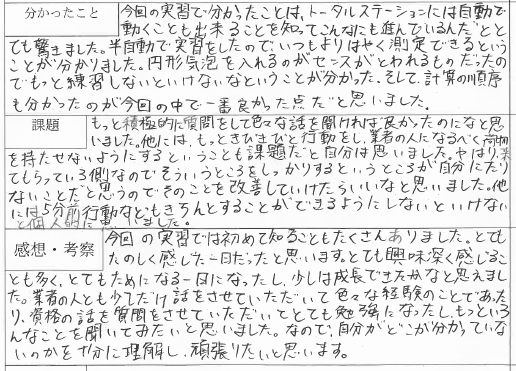 分かったこと
今回の実習で分かったことは、トータルステーションには自動で
動くことも出来ることを知ってこんなにも進んでいるんだとと
ても驚きました。半自動で実習をしたので、いつもよりはやく測定できるという
ことが分かりました。円形気泡を入れるのがセンスがとわれるものだったの
でもっと練習しないといけないなということが分かった。そして、計算の順序
も分かったのが今回の中で一番良かった点だと思いました。
課題
もっと積極的に質問をして色々な話を聞ければ良かったのになと思
いました。他には、もっときびきびと行動をし、業者の人になるべく荷物
を持たせないようにするということも課題だと自分は思いました。やはり、業
てもらっている側なのでそういうところをしっかりするというところが自分にたり
ないことだと思うので、そのことを改善していけたらいいなと思いました。他
には5分前行動などもきちんとすることができるようにしないといけない
と個人的に思いました。
感想・考察
今回の実習では初めて知ることもたくさんありました。とても
たのしく感じた一日だったと思います。とても興味深く感じるこ
とも多く、とてもためになる一日になったし、少しは成長できたかなと思えまし
た。業者の人とも少しだけ話をさせていただいて色々な経験のことであった
り、資格の話を質問をさせていただいてとても勉強になったし、もっといろ
んなことを聞いてみたいと思いました。なので、自分がどこが分かっていな
いのかを十分に理解し、頑張りたいと思います。